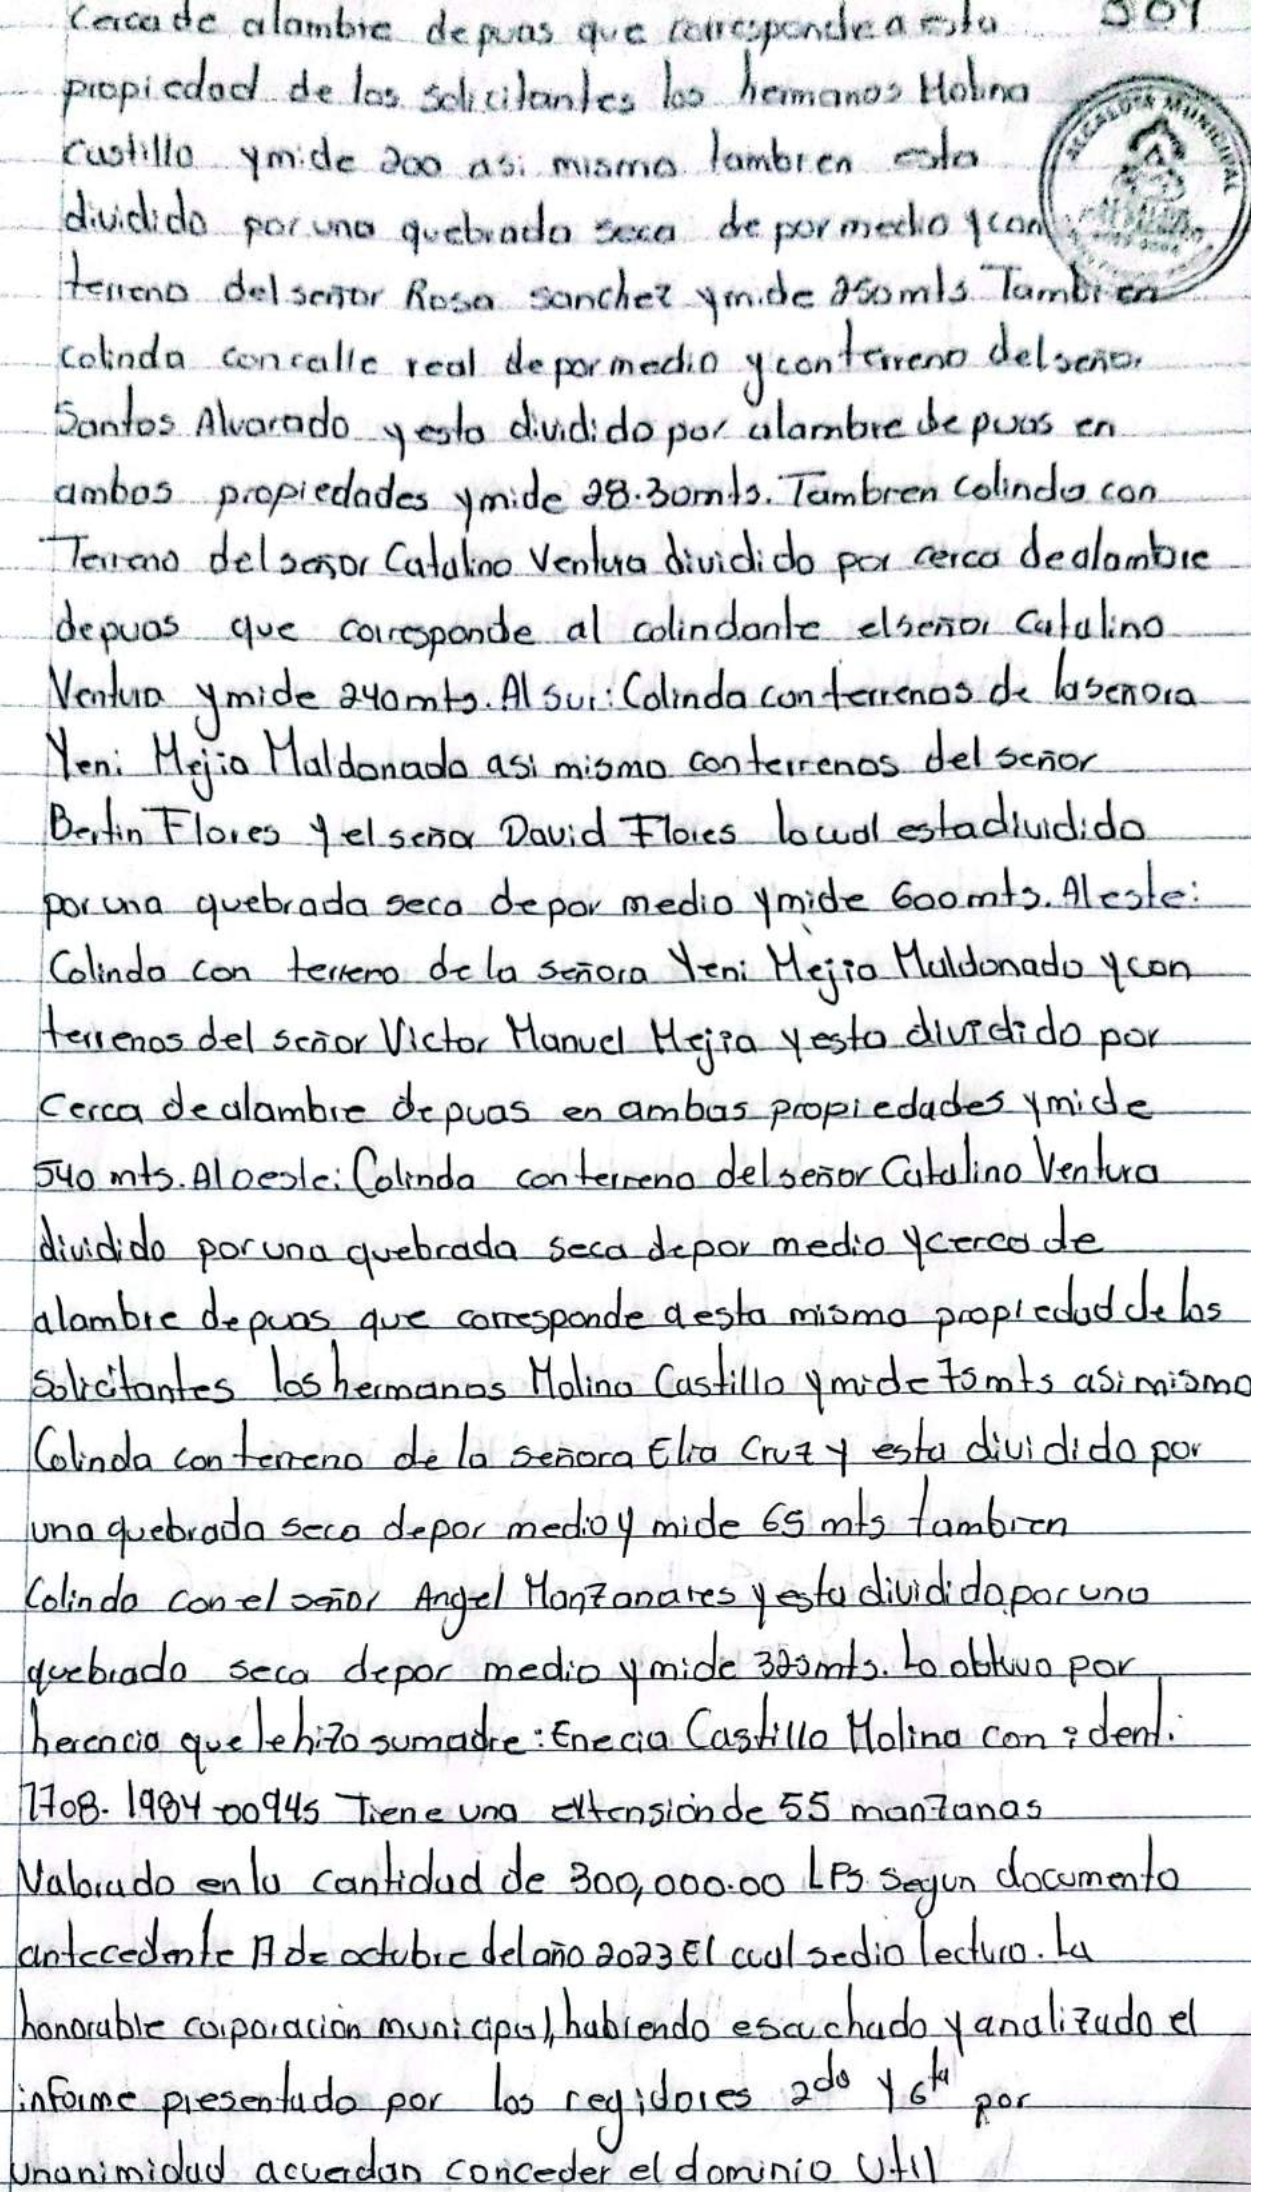 Cerca de alambre de puas que corresponde a esta
propiedad de los solicitantes los hermanos Molina
Castillo y mide 200 asi mismo tambien esta
dividido por una quebrada seca de por medio y con
terreno del señor Rosa Sanchez y mide 250 mts. Tambien
colinda con calle real de por medio y con terreno del señor
Santos Alvarado y esta dividido por alambre de puas en
ambas propiedades y mide 28.30 mts. Tambien colinda con
Terreno del señor Catalino Ventura dividido por cerca de alambre
de puas que corresponde al colindante el señor Catalino
Ventura y mide 240 mts. Al Sur: Colinda con terrenos de la senora
Yeni Mejia Maldonado asi mismo con terrenos del señor
Bertin Flores y el señor David Flores lo cual esta dividido
por una quebrada seca de por medio y mide 600 mts. Al este:
Colinda con terreno de la señora Yeni Mejia Maldonado y con
terrenos del señor Victor Manuel Mejia y esta dividido por
Cerca de alambre de puas en ambas propiedades y mide
540 mts. Al oeste: Colinda con terreno del señor Catalino Ventura
dividido por una quebrada seca de por medio y cerco de
alambre de puas que corresponde a esta misma propiedad de los
solicitantes los hermanos Molina Castillo y mide 75 mts asi mismo
Colinda con terreno de la señora Elia Cruz y esta dividido por
una quebrada seca de por medio y mide 65 mts tambien
Colinda con el señor Angel Manzanares y esta dividida por una
quebrada seca de por medio y mide 325 mts. Lo obtuvo por
herencia que le hizo su madre: Enecia Castillo Molina con ident:
1708-1984-00945 Tiene una extensión de 55 manzanas
Valorado en la cantidad de 300,000.00 LPS. Segun documento
antecedente 17 de octubre del año 2023 El cual se dio lectura. La
honorable corporación municipal, habiendo escuchado y analizado el
informe presentado por los regidores 2do y 6ta por
unanimidad acuerdan conceder el dominio Util
ALCALDIA MUNICIPAL